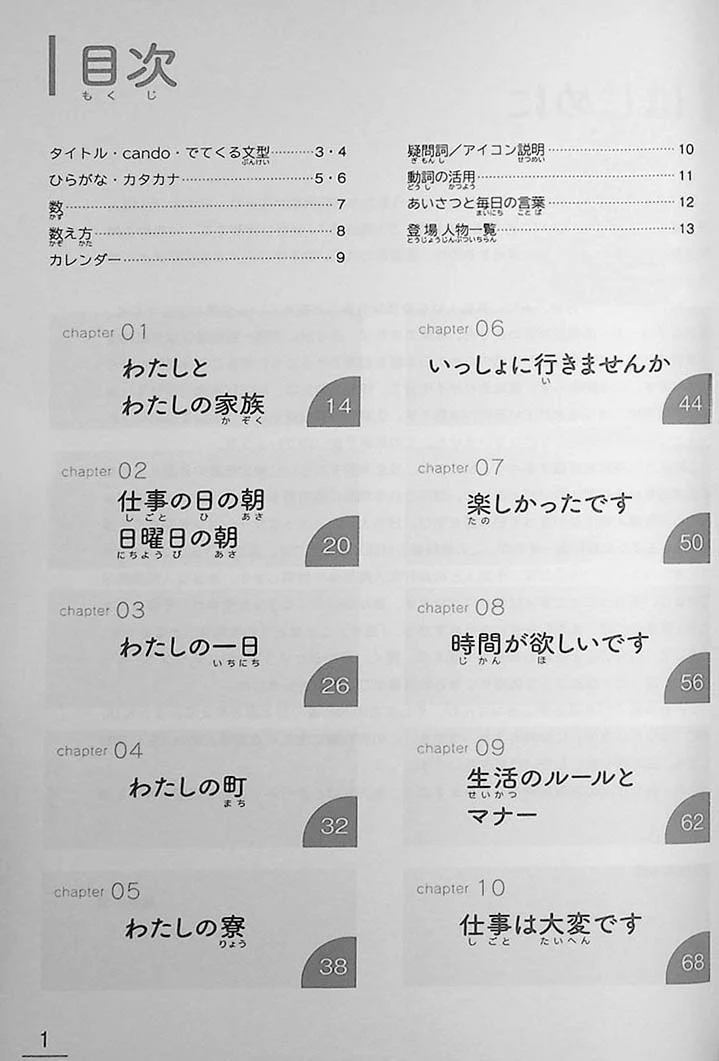 目次
もくじ
タイトル・cando・でてくる文型…………3・4
ぶんけい
ひらがな・カタカナ…………5・6
数…………7
かず
数え方…………8
かぞ かた
カレンダー…………9
疑問詞／アイコン説明…………10
ぎもんし せつめい
動詞の活用…………11
どうし かつよう
あいさつと毎日の言葉…………12
まいにち ことば
登場人物一覧…………13
とうじょうじんぶついちらん
chapter 01
わたしと
わたしの家族
かぞく
14
chapter 02
仕事の日の朝
しごと ひ あさ
日曜日の朝
にちようび あさ
20
chapter 03
わたしの一日
いちにち
26
chapter 04
わたしの町
まち
32
chapter 05
わたしの寮
りょう
38
chapter 06
いっしょに行きませんか
い
44
chapter 07
楽しかったです
たの
50
chapter 08
時間が欲しいです
じかん ほ
56
chapter 09
生活のルールと
せいかつ
マナー
62
chapter 10
仕事は大変です
しごと たいへん
68
1